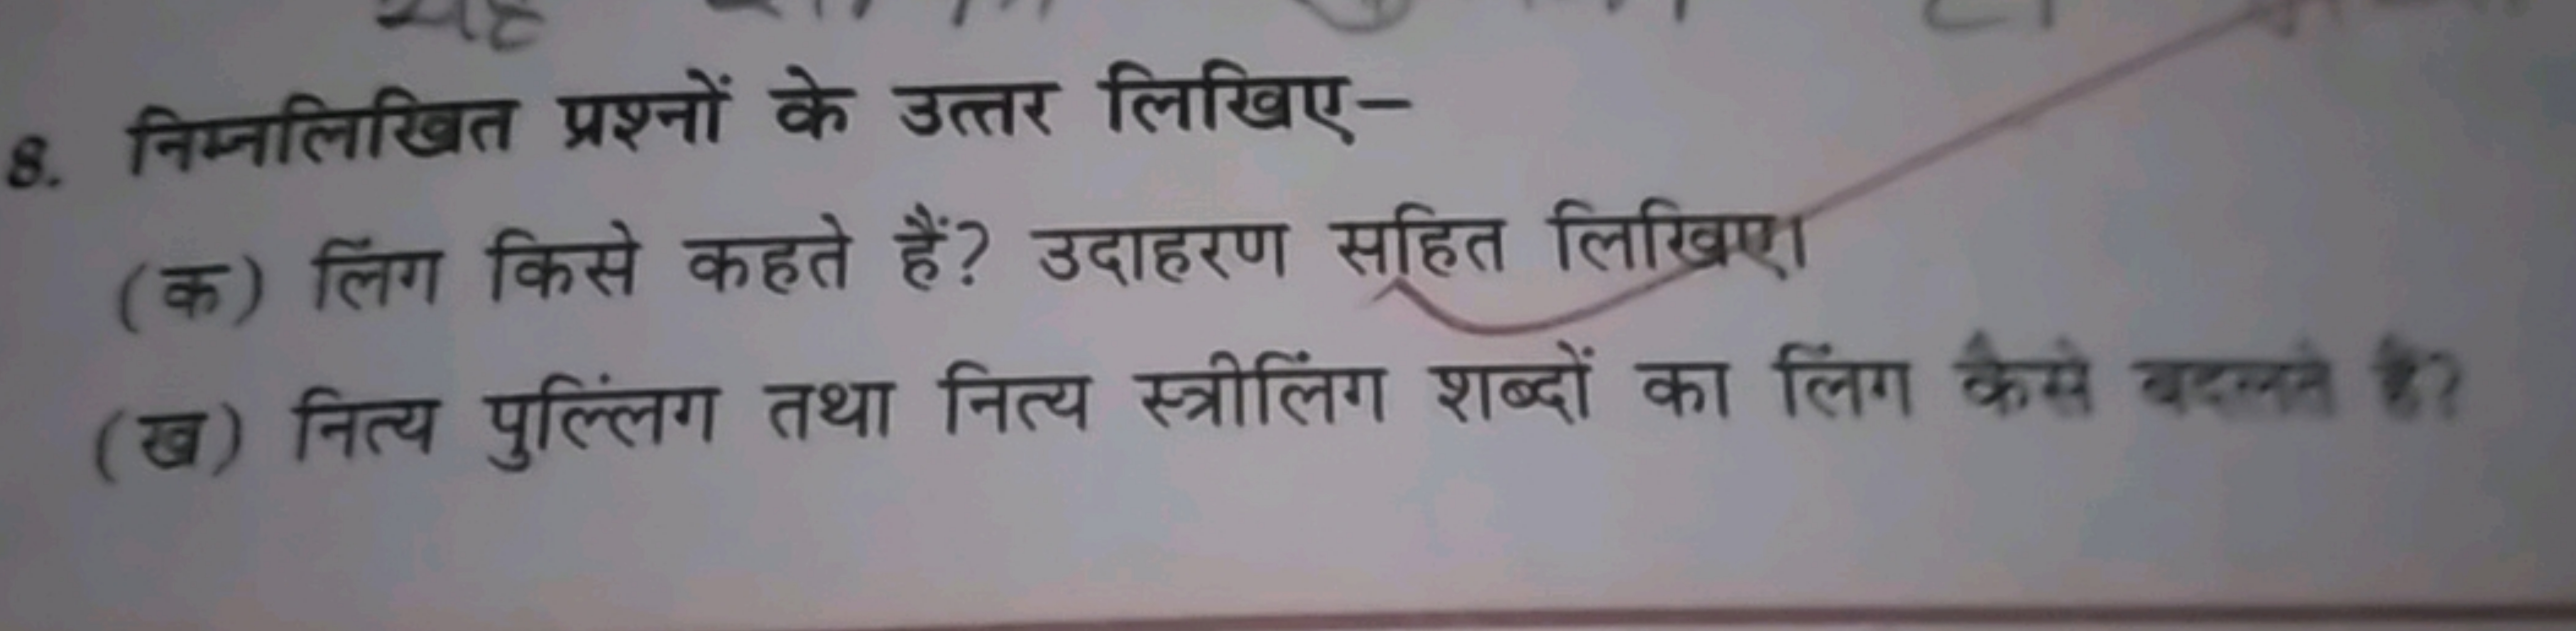 यह
8. निम्नलिखित प्रश्नों के उत्तर लिखिए–
(क) लिंग किसे कहते हैं? उदाहरण सहित लिखिए।
(ख) नित्य पुल्लिंग तथा नित्य स्त्रीलिंग शब्दों का लिंग कैसे बदलते हैं?